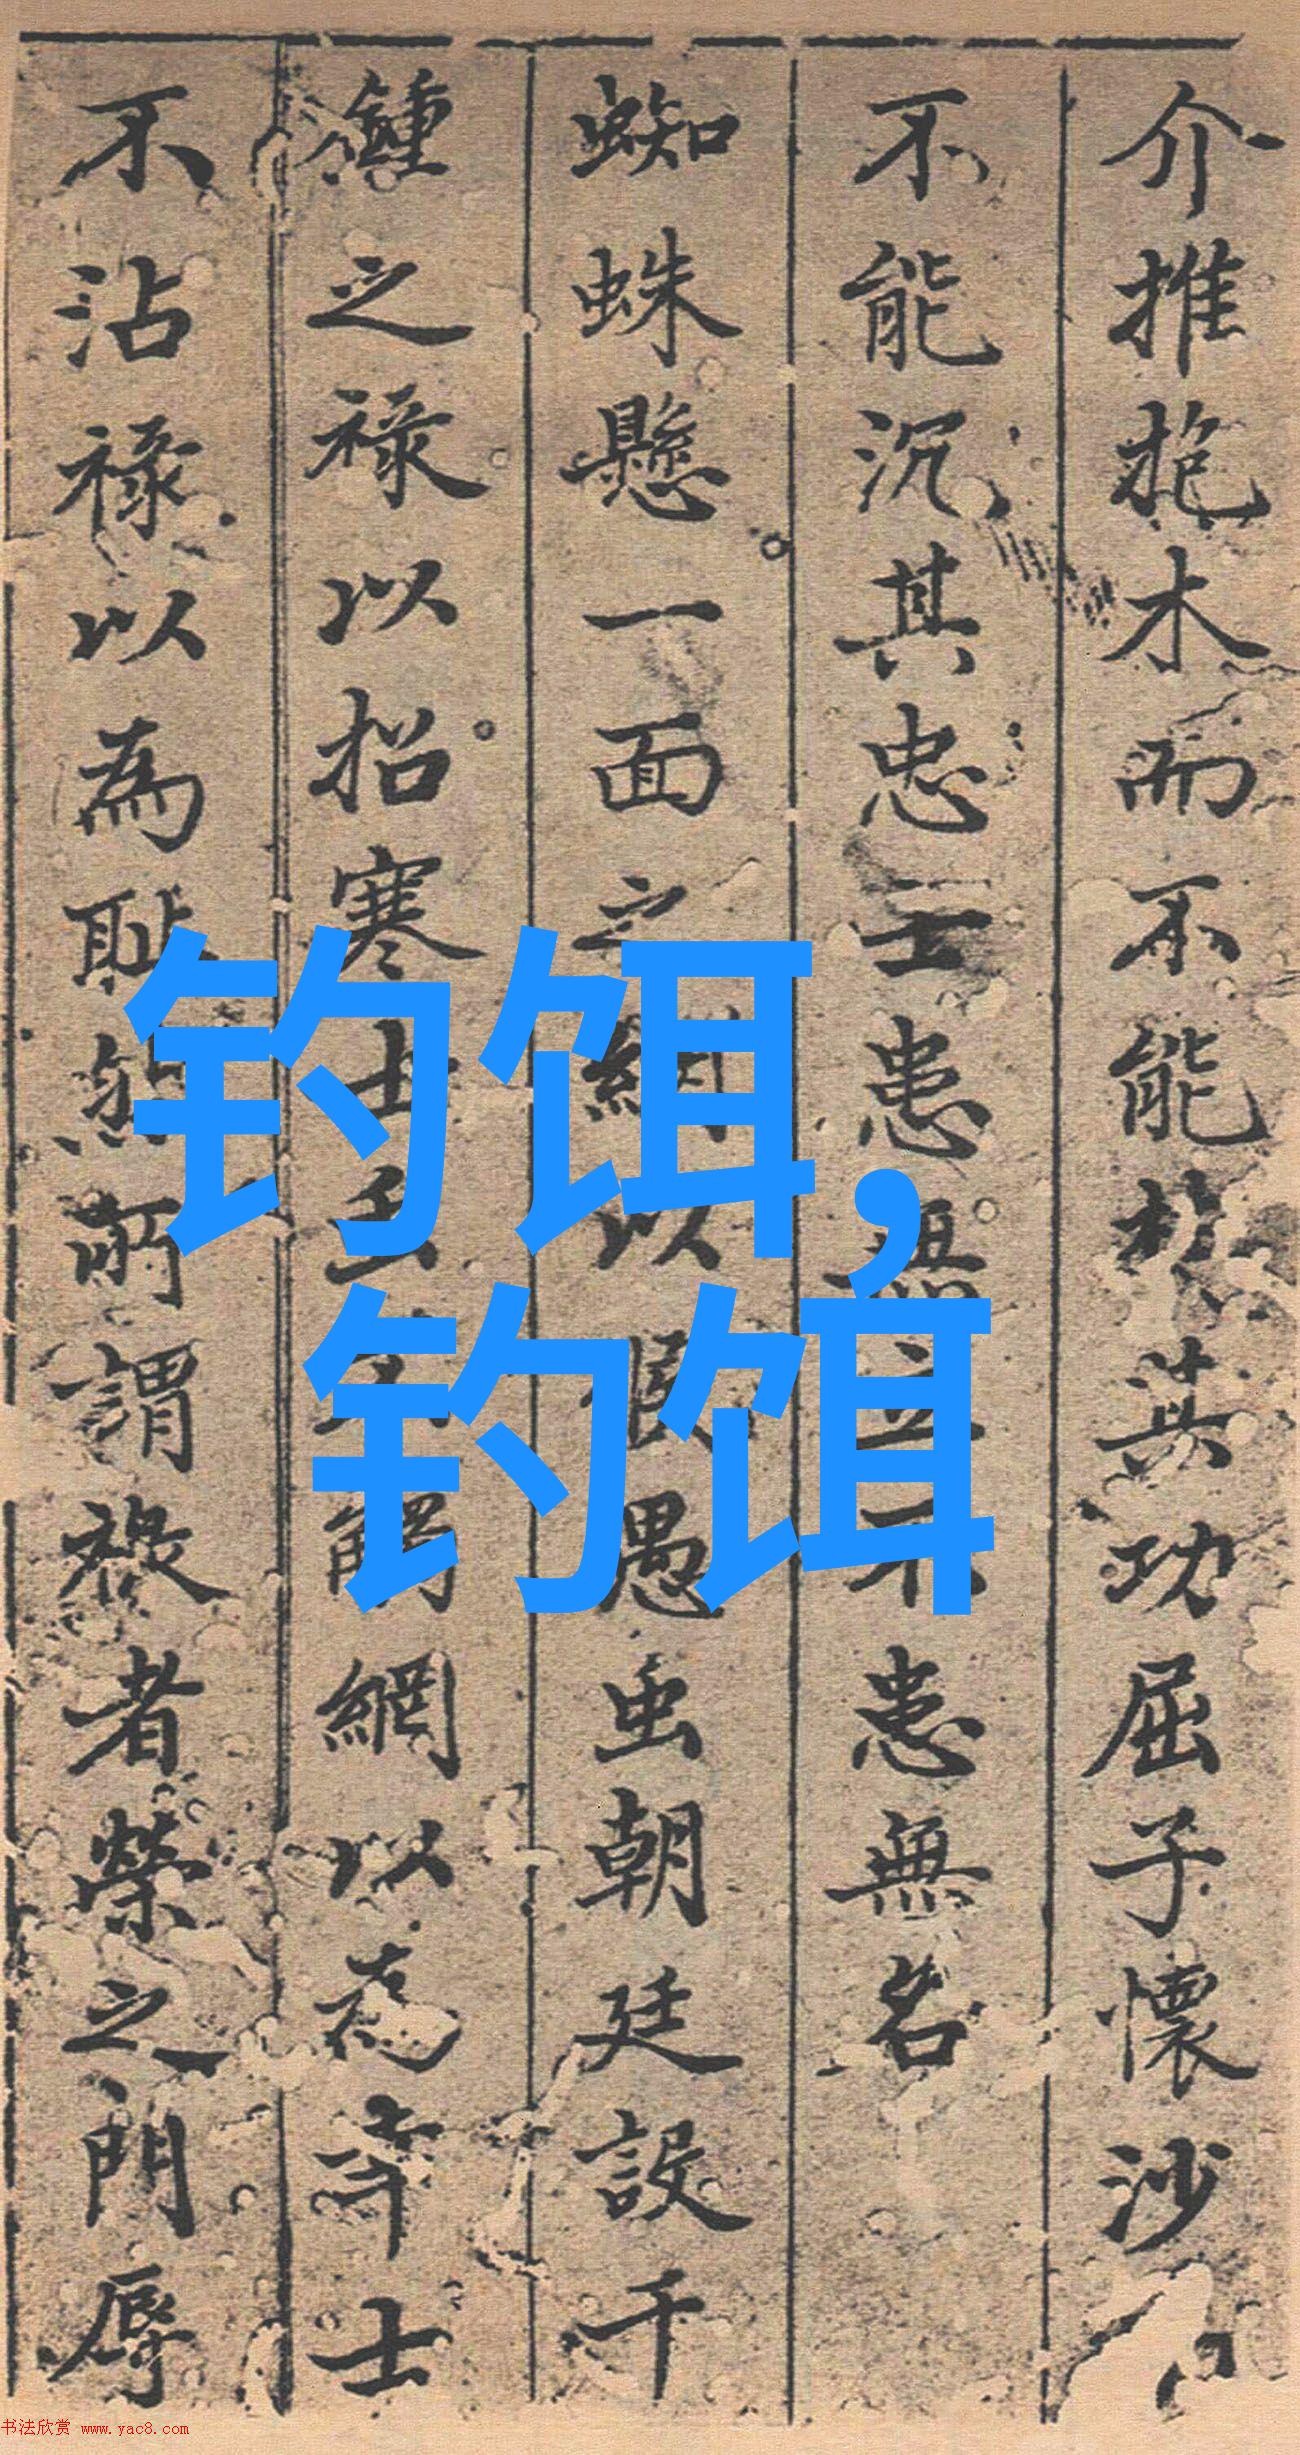 介推抱木而不能於其功屈子懷沙
不能沉其忠士患無立不患無名
蜘蛛懸一面之網以
愚虫朝廷設千
鍾之祿以招寒士
網以為
士
不沾祿以為耻
謂
者榮之門辱
钓饵,
钓饵
书法欣赏 www.yac8.com